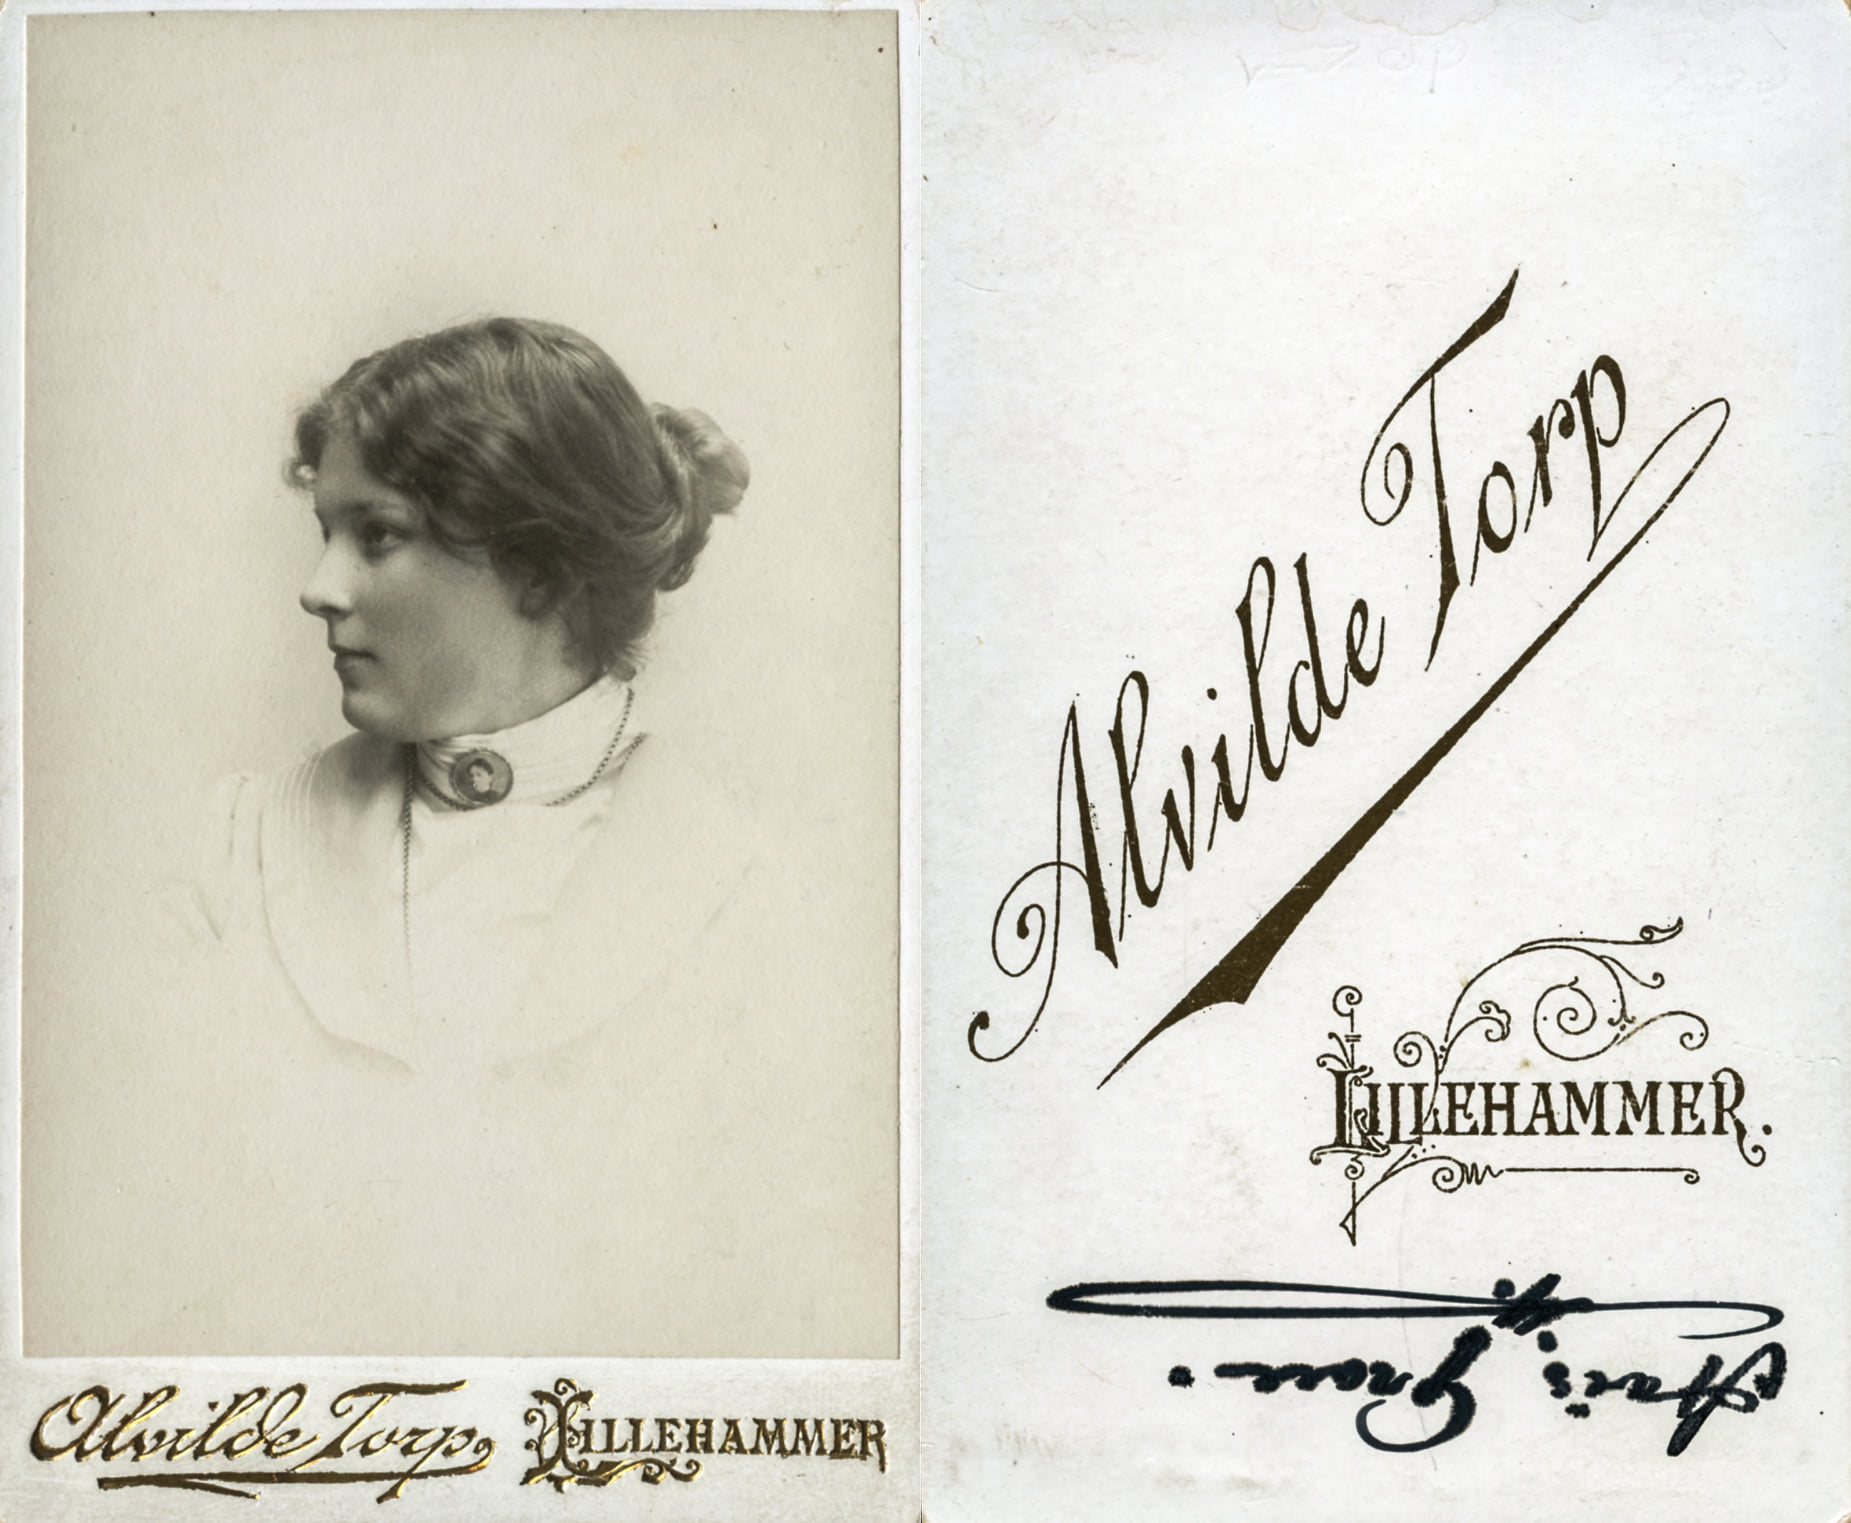 Alvilde Torp
LILLEHAMMER
Alvilde Torp
LILLEHAMMER.